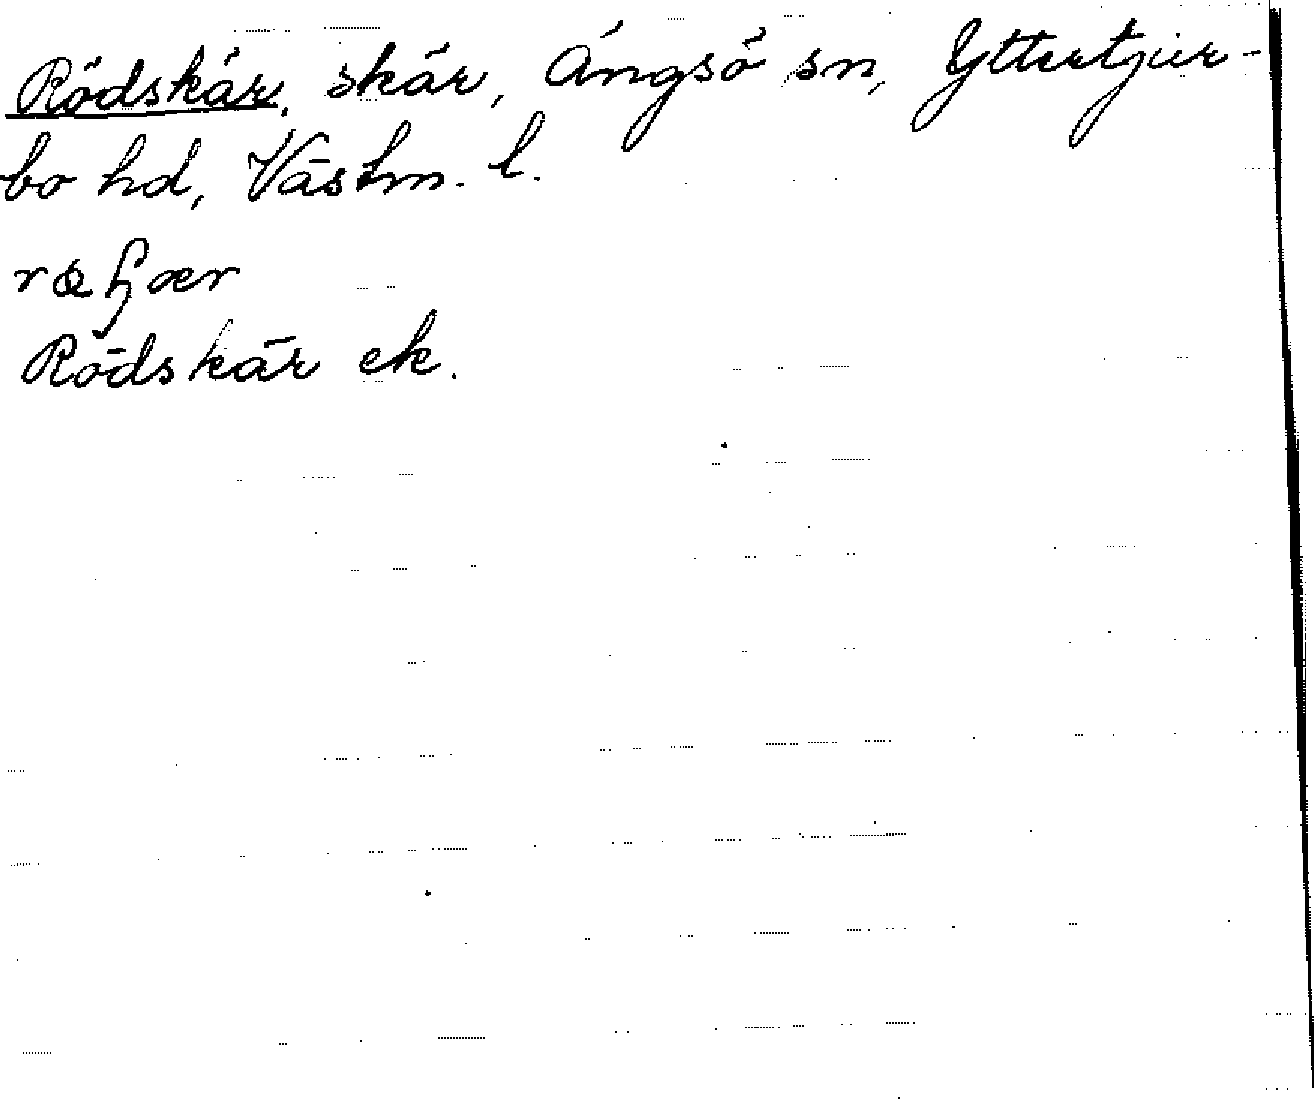 Rödskär, skär, Ängsö sn, Yttertjur-
bo hd, Västm. l.
Rödskär ek.